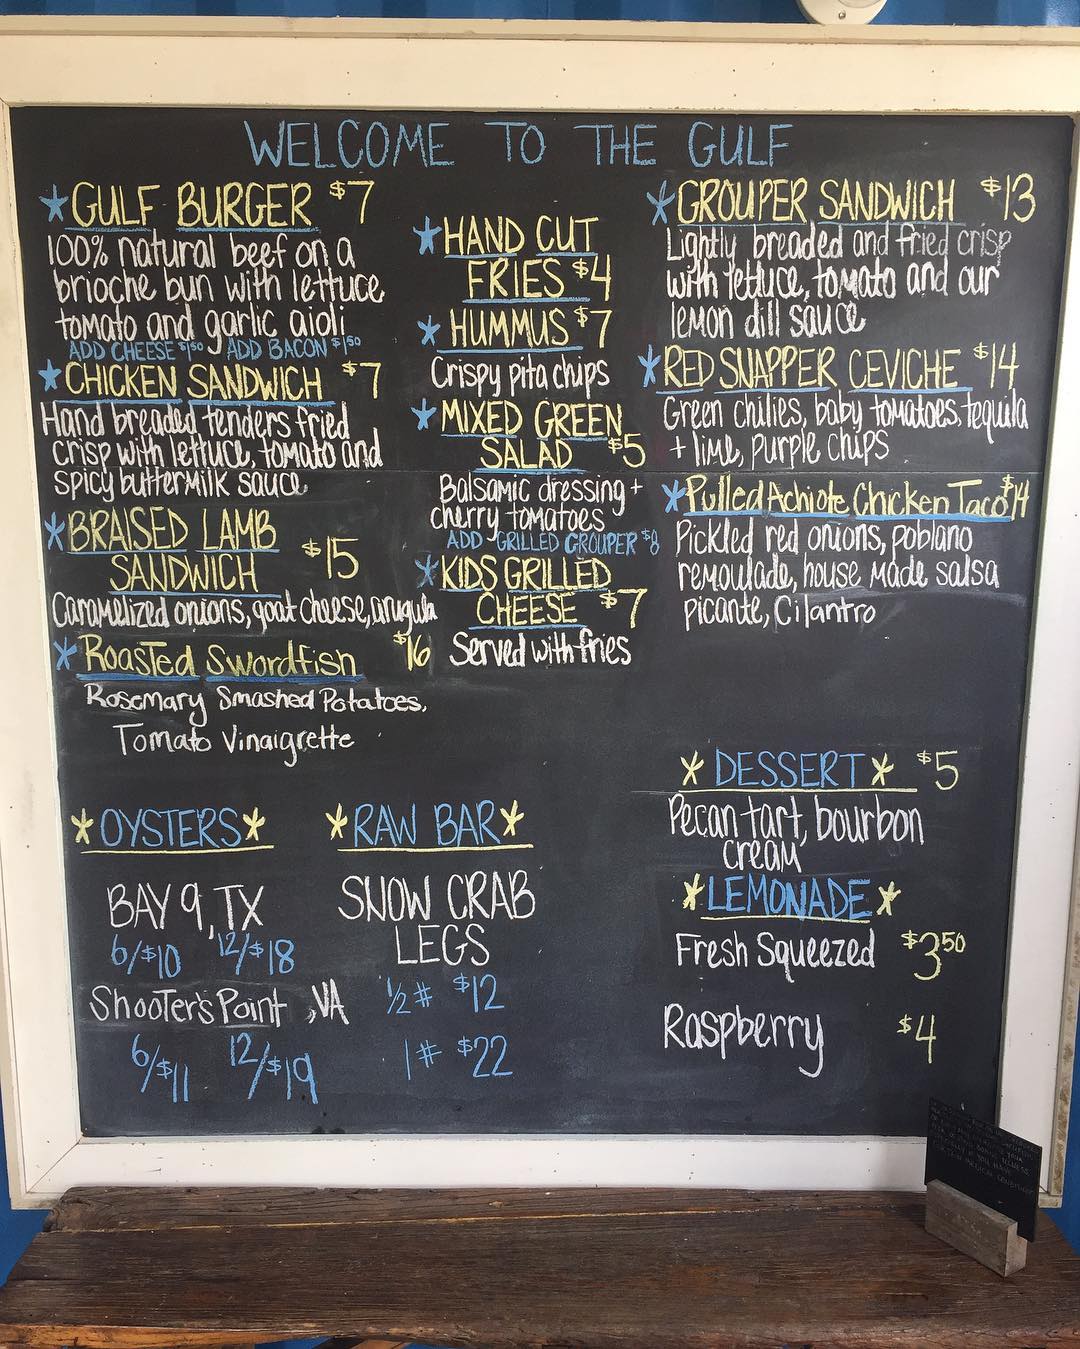 WELCOME TO THE GULF
GULF BURGER $7
100% natural beef on a
brioche bun with lettuce
tomato and garlic aioli
ADD CHEESE $1.50 ADD BACON $1.50
CHICKEN SANDWICH $7
Hand breaded tenders fried
crisp with lettuce, tomato and
spicy buttermilk sauce
BRAISED LAMB
SANDWICH $15
Caramelized onions, goat cheese, arugula
Roasted Swordfish $16
Rosemary Smashed Potatoes,
Tomato Vinaigrette
HAND CUT
FRIES $4
HUMMUS $7
Crispy pita chips
MIXED GREEN
SALAD $5
Balsamic dressing +
cherry tomatoes
ADD GRILLED GROUPER $8
KIDS GRILLED
CHEESE $7
Served with fries
GROUPER SANDWICH $13
Lightly breaded and fried crisp
with lettuce, tomato and our
lemon dill sauce
RED SNAPPER CEVICHE $14
Green chilies, baby tomatoes, tequila
+ lime, purple chips
Pulled Achiote Chicken Taco $14
Pickled red onions, poblano
remoulade, house made salsa
picante, Cilantro
OYSTERS
BAY 9, TX
6/$10 12/$18
Shooter's Point, VA
6/$11 12/$19
RAW BAR
SNOW CRAB
LEGS
1/2 # $12
1 # $22
DESSERT $5
Pecan tart, bourbon
cream
LEMONADE
Fresh Squeezed $3.50
Raspberry $4